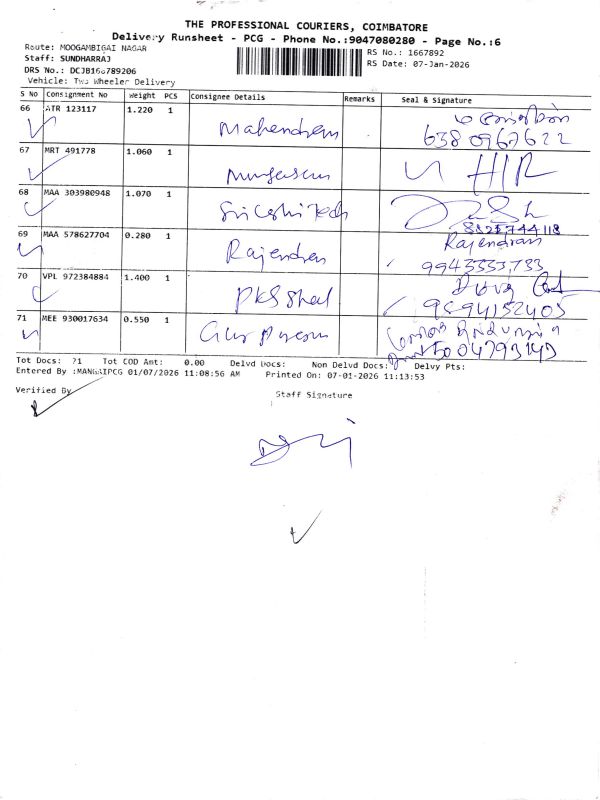 THE PROFESSIONAL COURIERS, COIMBATORE
Delivery Runsheet - PCG - Phone No.:9047080280 - Page No.:6
Route: MOOGAMBIGAI NAGAR
RS No.: 1667892
Staff: SUNDHARRAJ
RS Date: 07-Jan-2026
DRS No.: DCJB16789206
Vehicle: Two Wheeler Delivery
S No Consignment No Weight PCS Consignee Details Remarks Seal & Signature
66 ATR 123117 1.220 1 Mahendran
6380967622
67 MRT 491778 1.060 1 Murgesan HIR
68 MAA 303980948 1.070 1 Sri Coshi Tech
69 MAA 578627704 0.280 1 Rajendren Rajendran
9943553733
70 VPL 972384884 1.400 1 PKS Steel
9594152405
71 MEE 930017634 0.550 1
Tot Docs: 71 Tot COD Amt: 0.00 Delvd Docs: Non Delvd Docs: Delvy Pts:
Entered By :MANGAIPCG 01/07/2026 11:08:56 AM Printed On: 07-01-2026 11:13:53
Verified By
Staff Signature